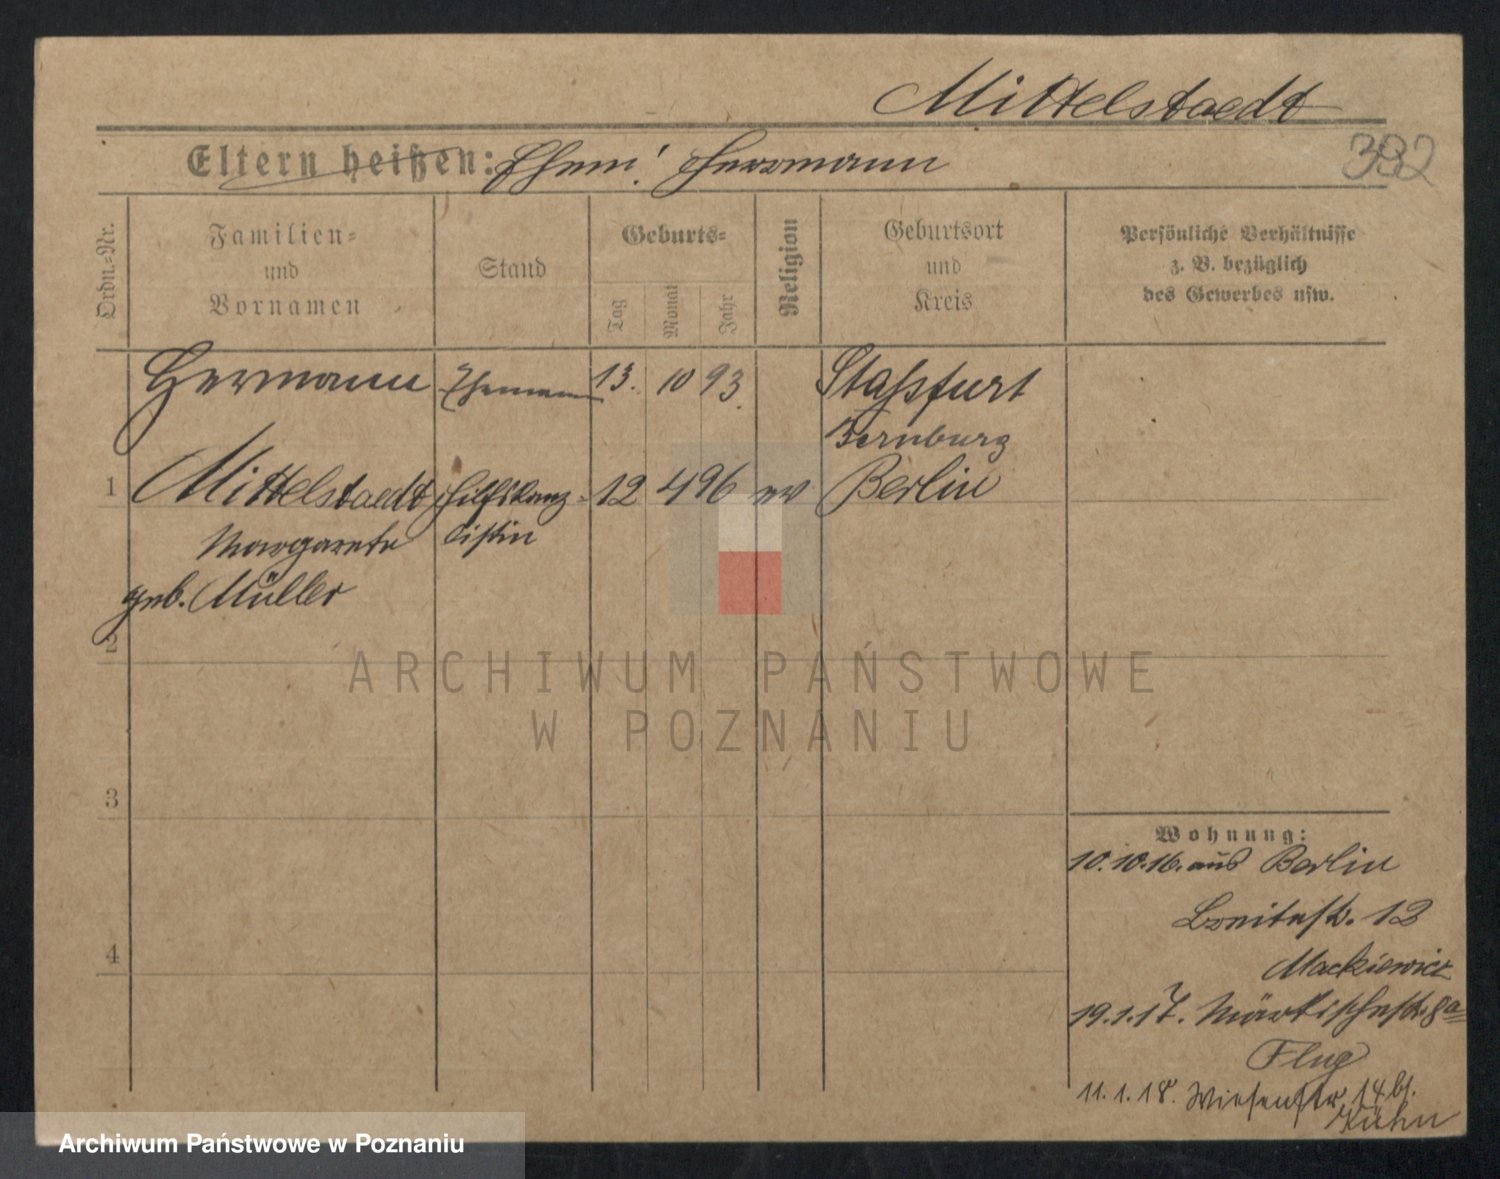 Mittelstaedt
382
Eltern heißen: Ehem: Hermann
Ordn.-Nr.
Familien-
und
Vornamen
Stand
Geburts-
Tag
Monat
Jahr
Religion
Geburtsort
und
Kreis
Persönliche Verhältnisse
z. B. bezüglich
des Gewerbes usw.
Hermann Ehemann 13. 10 93. Staßfurt
Bernburg
1 Mittelstaedt Hilfskanz- 12 4 96 ev Berlin
Margarete listin
geb. Müller
2
3
4
Wohnung:
10.10.16. aus Berlin
Breitestr. 12
Mackiewicz
19.1.17. Märkischestr. 8a
Flug
11.1.18. Wiesenstr. 14 bf.
Kühn
ARCHIWUM PAŃSTWOWE
W POZNANIU
Archiwum Państwowe w Poznaniu